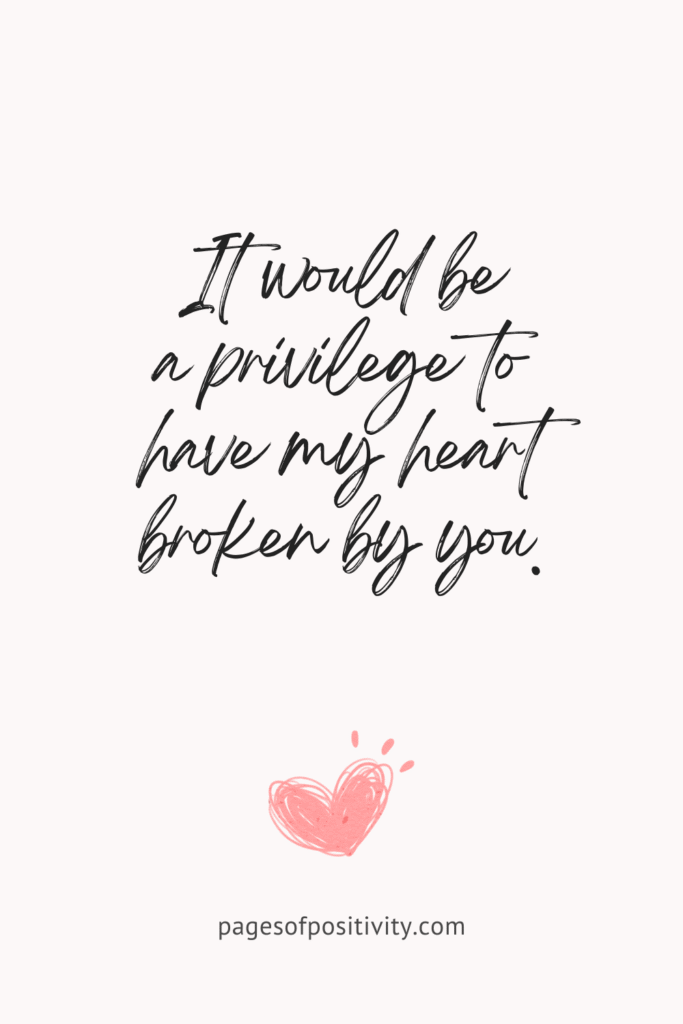 It would be
a privilege to
have my heart
broken by you.
pagesofpositivity.com